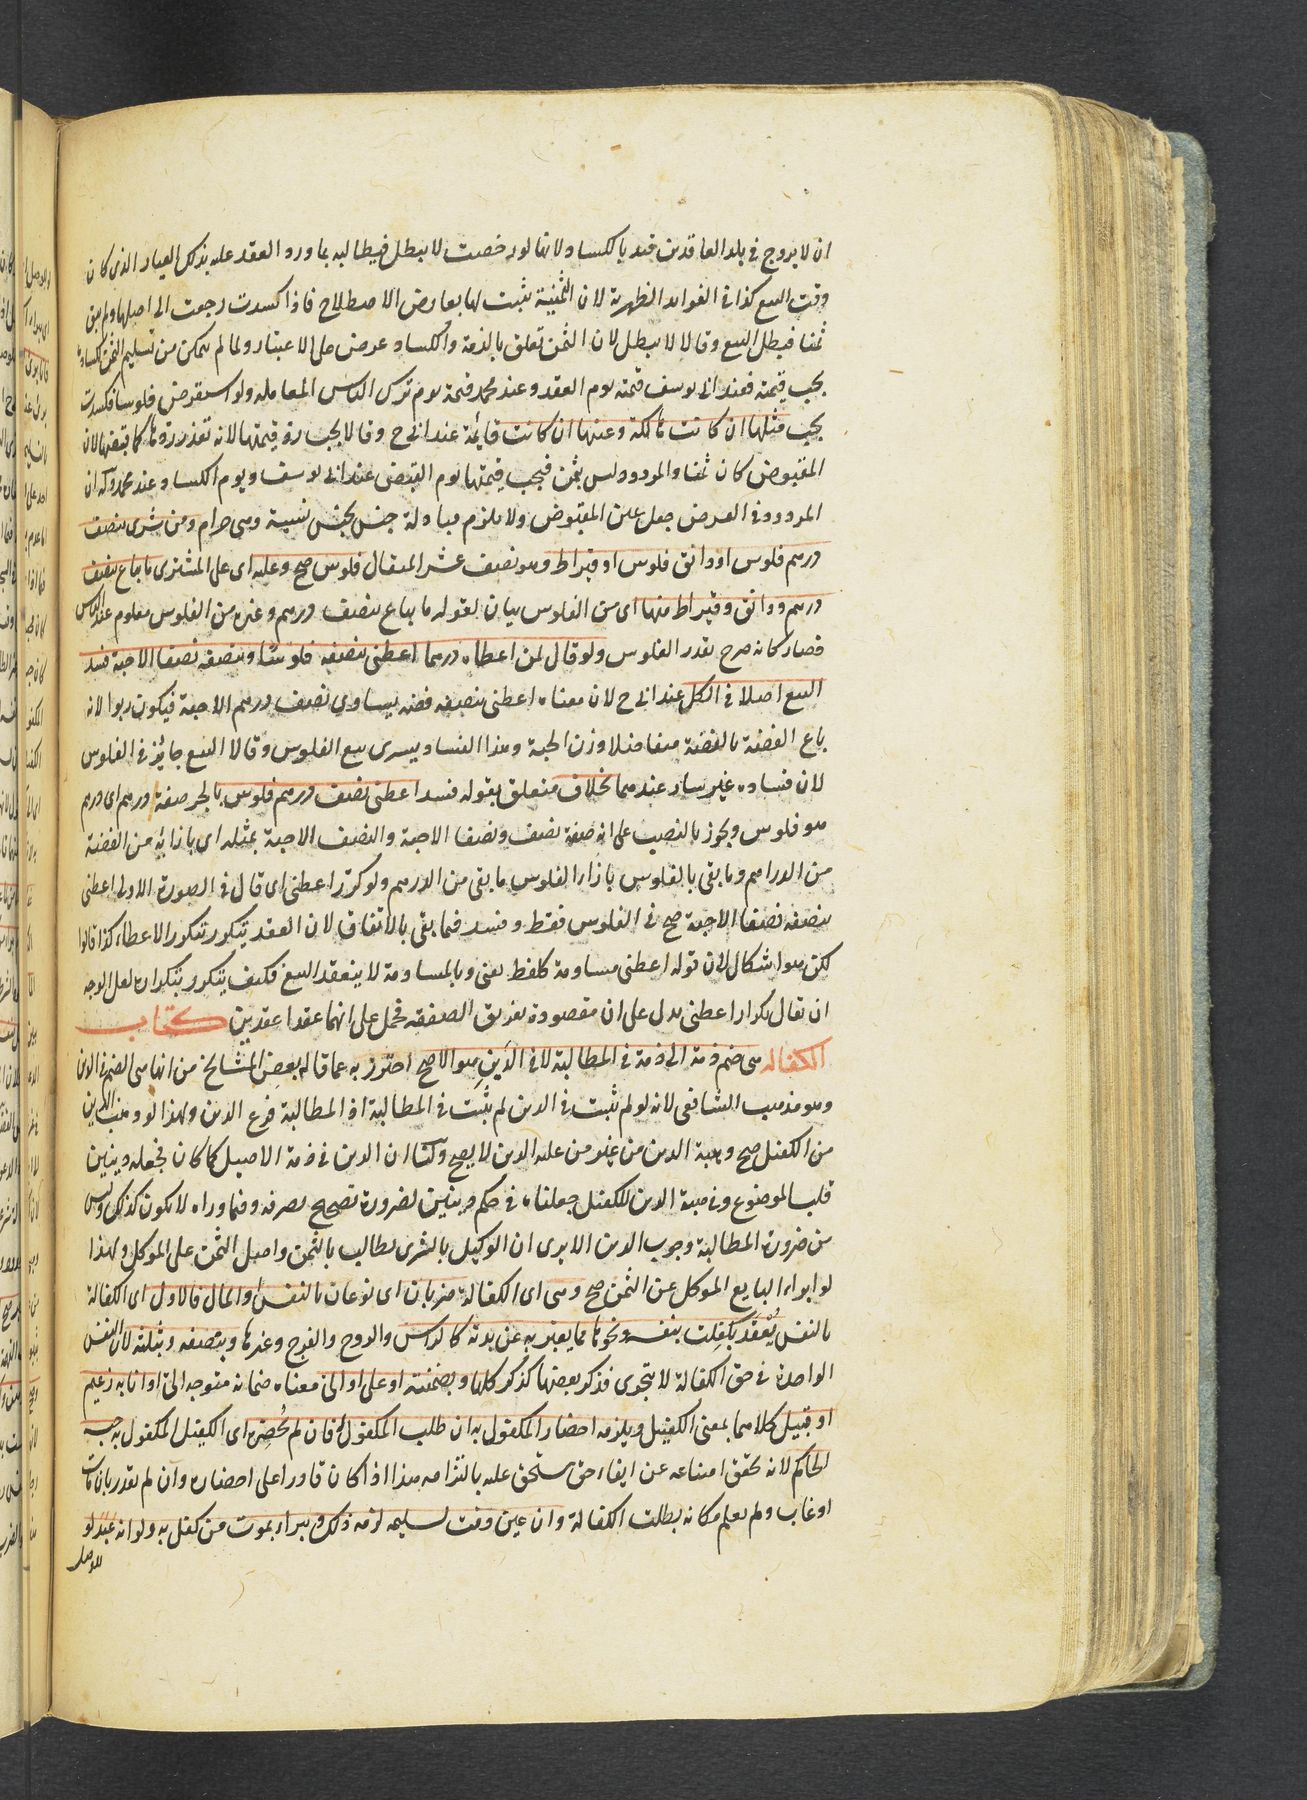 ان لا يروج في بلد العاقدين قيد بالكساد لانها لو رخصت لا يبطل فيطالبه بما ورد العقد عليه بذلك العيار الذي كان
وقت البيع كذا في الفوائد الظهيرية لان الثمنية يثبت لها بعارض الاصطلاح فاذا كسدت رجعت الى اصلها ولم يبق
ثمنا فبطل البيع وقالا لا يبطل لان الثمن تعلق بالذمة والكساد عرض على الاعتبار ولما لم يتمكن من تسليم الثمن بكساده
يجب قيمته فعند ابي يوسف قيمته يوم العقد وعند محمد قيمة يوم ترك الناس المعاملة ولو استقرض فلوسا فكسدت
يجب مثلها ان كانت هالكة وعينها ان كانت قائمة عند ابي ح وقالا يجب رد قيمتها لانه تعذر ردها كما قبضها لان
المقبوض كان ثمنا والمردود ليس بثمن فيجب قيمتها يوم القبض عند ابي يوسف ويوم الكساد عند محمد وله ان
المردود في القرض جعل عين المقبوض ولا يلزم مبادلة جنس بجنس نسية وهي حرام ومن شرى بنصف
درهم فلوس او دانق فلوس او قيراط وهو نصف عشر المثقال فلوس صح وعليه اى على المشترى ما يباع بنصف
درهم ودانق وقيراط منها اى من الفلوس بيان لقوله ما يباع بنصف درهم وغيره من الفلوس معلوم عند الناس
فصار كانه صرح بقدر الفلوس ولو قال لمن اعطاه درهما اعطني بنصفه فلوسا وبنصفه نصفا الاحبة فسد
البيع اصلا في الكل عند ابي ح لان معناه اعطني بنصفه فضة يساوي نصف درهم الاحبة فيكون ربوا لانه
باع الفضة بالفضة متفاضلا وزن الحبة وهذا الفساد يسرى بيع الفلوس وقالا البيع جايز في الفلوس
لان فساده غير سار عندهما بخلاف متعلق بقوله فسد اعطني نصف درهم فلوس بالجر صفة درهم اى درهم
هو فلوس ويجوز بالنصب على انه صفة نصف ونصفا الاحبة والنصف الاحبة بمثله اى بازائه من الفضة
من الدراهم وما بقى بالفلوس بازاء الفلوس ما بقى من الدرهم ولو كرر اعطني اى قال في الصورة الاولى اعطني
بنصفه نصفا الاحبة صح في الفلوس فقط وفسد فيما بقى بالاتفاق لان العقد يتكرر بتكرر الاعطاء كذا قالوا
لكن هو اشكال لان قوله اعطني مساومة كلفظ بعني وبالمساومة لا ينعقد البيع فكيف يتكرر بتكراره لعل الوجه
ان يقال تكرار اعطني يدل على ان مقصوده تفريق الصفقة فحمل على انهما عقدا عقدين كتاب
الكفالة هى ضم ذمة الى ذمة في المطالبة لا في الدين هو الاصح احترز به عما قاله بعض المشايخ من انها هى الضم في الدين
وهو مذهب الشافعي لانه لو لم يثبت في الدين لم يثبت في المطالبة اذ المطالبة فرع الدين ولهذا لو وهب الدين
من الكفيل صح وهبة الدين من غير من عليه الدين لا يصح ولنا ان الدين في ذمة الاصيل كما كان فجعله دينين
قلب الموضوع وفي هبة الدين للكفيل جعلناه في حكم دينين لضرورة تصحيح تصرفه وفيما وراءه لا يكون كذلك وليس
من ضرورة المطالبة وجوب الدين الا يرى ان الوكيل بالشرى يطالب بالثمن واصل الثمن على الموكل ولهذا
لو ابراء البايع الموكل عن الثمن صح وهى اى الكفالة ضربان اى نوعان بالنفس والمال فالاول اى الكفالة
بالنفس ينعقد بكفلت بنفسه ونحوها مما يعبر به عن بدنه كالرأس والروح والفرج وغيرها وبنصفه وبثلثه لان النفس
الواحدة في حق الكفالة لا يتجزى فذكر بعضها كذكر كلها وبضمنته او على او الى معناه ضمانه متوجه الى او انا به زعيم
او قبيل كلاهما بمعنى الكفيل ويلزمه احضار المكفول به ان طلب المكفول له فان لم يحضره اى الكفيل المكفول به حبسه
الحاكم لانه تحقق امتناعه عن ايفاء حق مستحق عليه بالتزامه هذا اذا كان قادرا على احضاره وان لم يقدر بان مات
او غاب ولم يعلم مكانه بطلت الكفالة وان عين وقت تسليمه لزمه ذلك ويبراء بموت من كفل به ولو انه عبد لو
للوصل